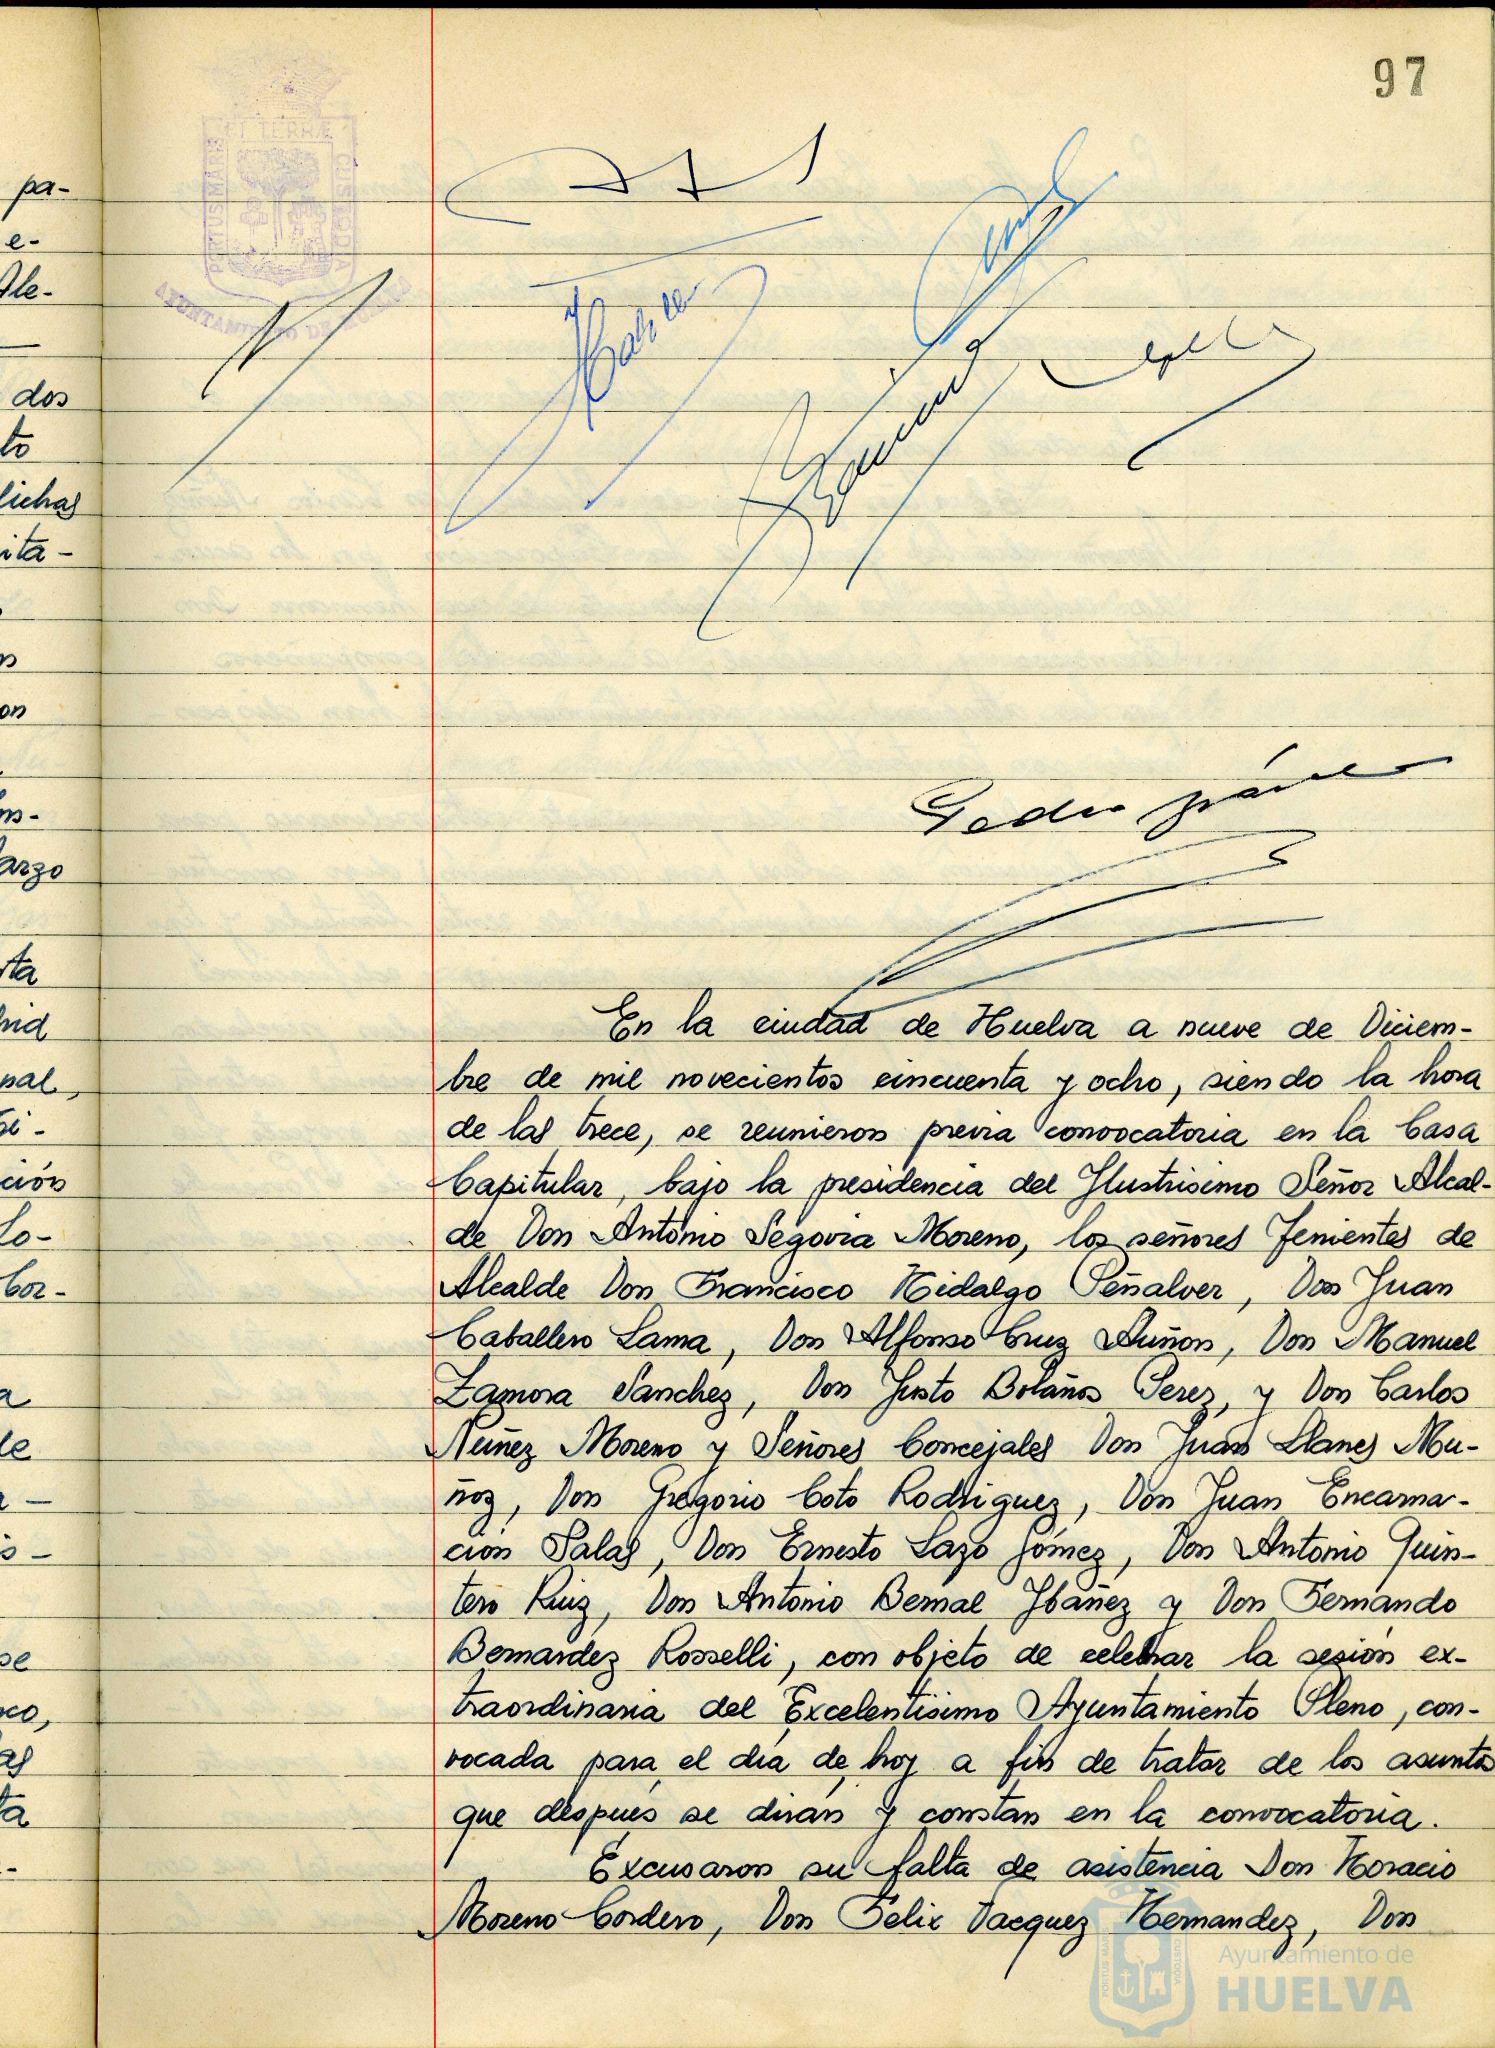 97
PORTUS MARIS
ET TERRÆ
CUSTODIA
AYUNTAMIENTO DE HUELVA
pa-
e-
Ale-
dos
to
dichas
ita-
on
arzo
ta
rid
nal,
si-
ción
Lo-
Cor-
a
de
se
co,
as
ta
En la ciudad de Huelva a nueve de Diciem-
bre de mil novecientos cincuenta y ocho, siendo la hora
de las trece, se reunieron previa convocatoria en la Casa
Capitular, bajo la presidencia del Ilustrisimo Señor Alcal-
de Don Antonio Segovia Moreno, los señores Tenientes de
Alcalde Don Francisco Hidalgo Peñalver, Don Juan
Caballero Lama, Don Alfonso Cruz Auñon, Don Manuel
Zamora Sanchez, Don Justo Bolaños Perez, y Don Carlos
Nuñez Moreno y Señores Concejales Don Juan Llanes Mu-
ñoz, Don Gregorio Coto Rodriguez, Don Juan Encarna-
ción Salas, Don Ernesto Lazo Gómez, Don Antonio Quin-
tero Ruiz, Don Antonio Bernal Ybañez y Don Fernando
Bernardez Rosselli, con objeto de celebrar la sesión ex-
traordinaria del Excelentisimo Ayuntamiento Pleno, con-
vocada para el dia de hoy a fin de tratar de los asuntos
que después se dirán y constan en la convocatoria.
Excusaron su falta de asistencia Don Horacio
Moreno Cordero, Don Felix Vacquez Hernandez, Don
PORTUS MARIS
CUSTODIA
Ayuntamiento de
HUELVA